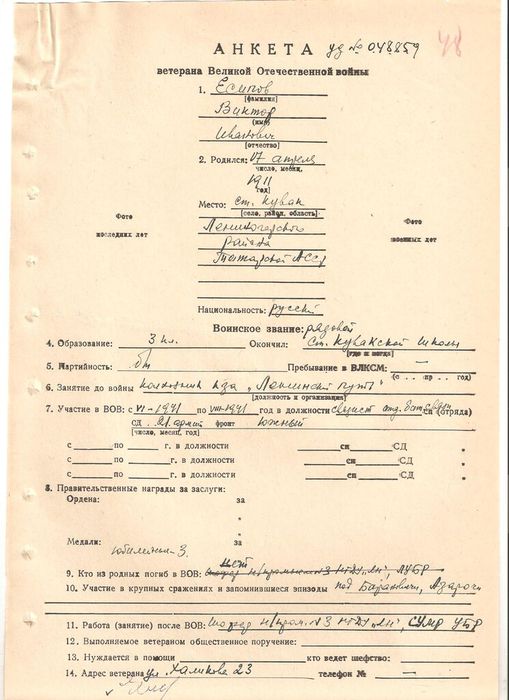 АНКЕТА уд № 048859
48
ветерана Великой Отечественной войны
1. Есипов
[фамилия]
Виктор
(имя)
Иванович
[отчество]
2. Родился: 17 апреля
число, месяц,
1911
год]
Место: ст. Кувак
[село, район, область]
Лениногорского
района
Татарской АССР
Фото
последних лет
Фото
военных лет
Национальность: русский
Воинское звание: рядовой
4. Образование: 3 кл. Окончил: Ст. Кувакской школы
[где и когда]
5. Партийность: бп Пребывание в ВЛКСМ: —
(с . . пр . . год)
6. Занятие до войны колхозник к-за „Ленинский путь"
[должность и организация]
7. Участие в ВОВ: с VI-1941 по VIII-1941 год в должности связист отд. сп (отряда)
сд 21 армии фронт Южный
[число, месяц, год]
с по г. в должности сп СД „
с по г. в должности сп СД „
с по г. в должности сп СД „
8. Правительственные награды за заслуги:
Ордена: за
„
„
Медали: за
юбилейн-3
нет
9. Кто из родных погиб в ВОВ:
10. Участие в крупных сражениях и запомнившиеся эпизоды под
11. Работа (занятие) после ВОВ: н/пром. №3 НГДУ „ЛН", УБР
12. Выполняемое ветераном общественное поручение:
13. Нуждается в помощи кто ведет шефство:
14. Адрес ветерана ул. Халикова 23 телефон № —